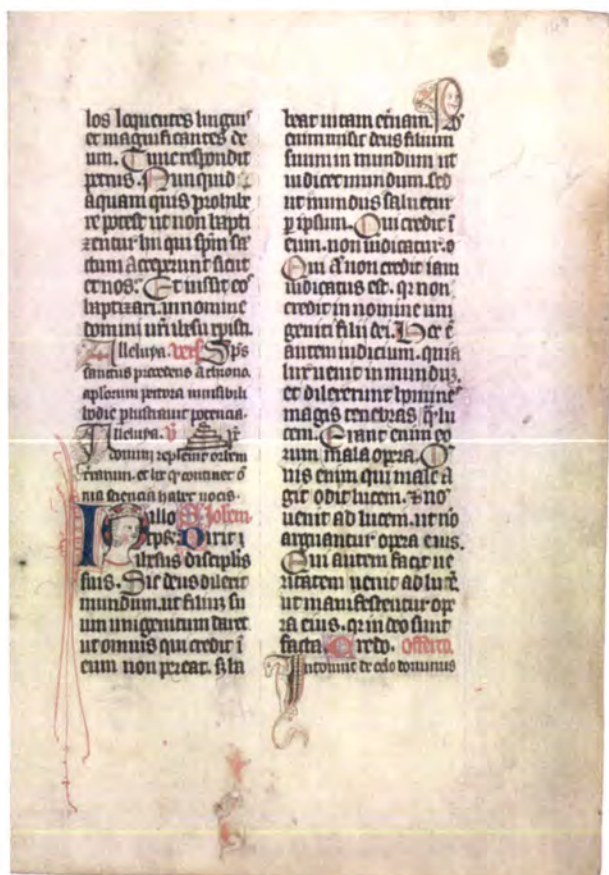 los loquentes linguis
et magnificantes de
um. Tunc respondit
petrus. Nunquid
aquam quis prohibe
re potest ut non bapti
zentur hii qui spm sā
ctum acceperunt sicut
et nos. Et iussit eos
baptizari. in nomine
domini nr̄i ihesu xpisti.
Alleluya. vers Sp̄s
sanctus procedens a throno.
aplorum pectora inuisibili
hodie p̄lustrauit potencia.
Alleluya. v̄
domini repleuit orbem
t̄rarum. et hoc q̄ continet ō
nia scienciā habet uocis.
In illo S. Iohem
tp̄r. Dixit
ihesus discip̄lis
suis. Sic deus dilexit
mundum. ut filiū su
um unigenitum daret
ut omnis qui credit ī
eum non pereat. s̄ ha
beat uitam et̄nam. No
enim misit deus filium
suum in mundum ut
iudicet mundum. sed
ut mundus saluetur
p ipsum. Qui credit ī
eum. non iudicatur.
Qui ā non credit iam
iudicatus est. qr non
credit in nomine uni
geniti filii dei. Hec ē
autem iudicium. quia
lux uenit in mundū.
et dilexerunt homines
magis tenebras q̄ lu
cem. Erant enim eo
rum mala opera. Om
nis enim qui male a
git odit lucem. & nō
uenit ad lucem. ut nō
arguantur opera eius.
Qui autem facit ue
ritatem uenit ad lucē.
ut manifestentur ope
ra eius. qr in deo sunt
facta. Credo. offert͞o.
Intonuit de celo dominus